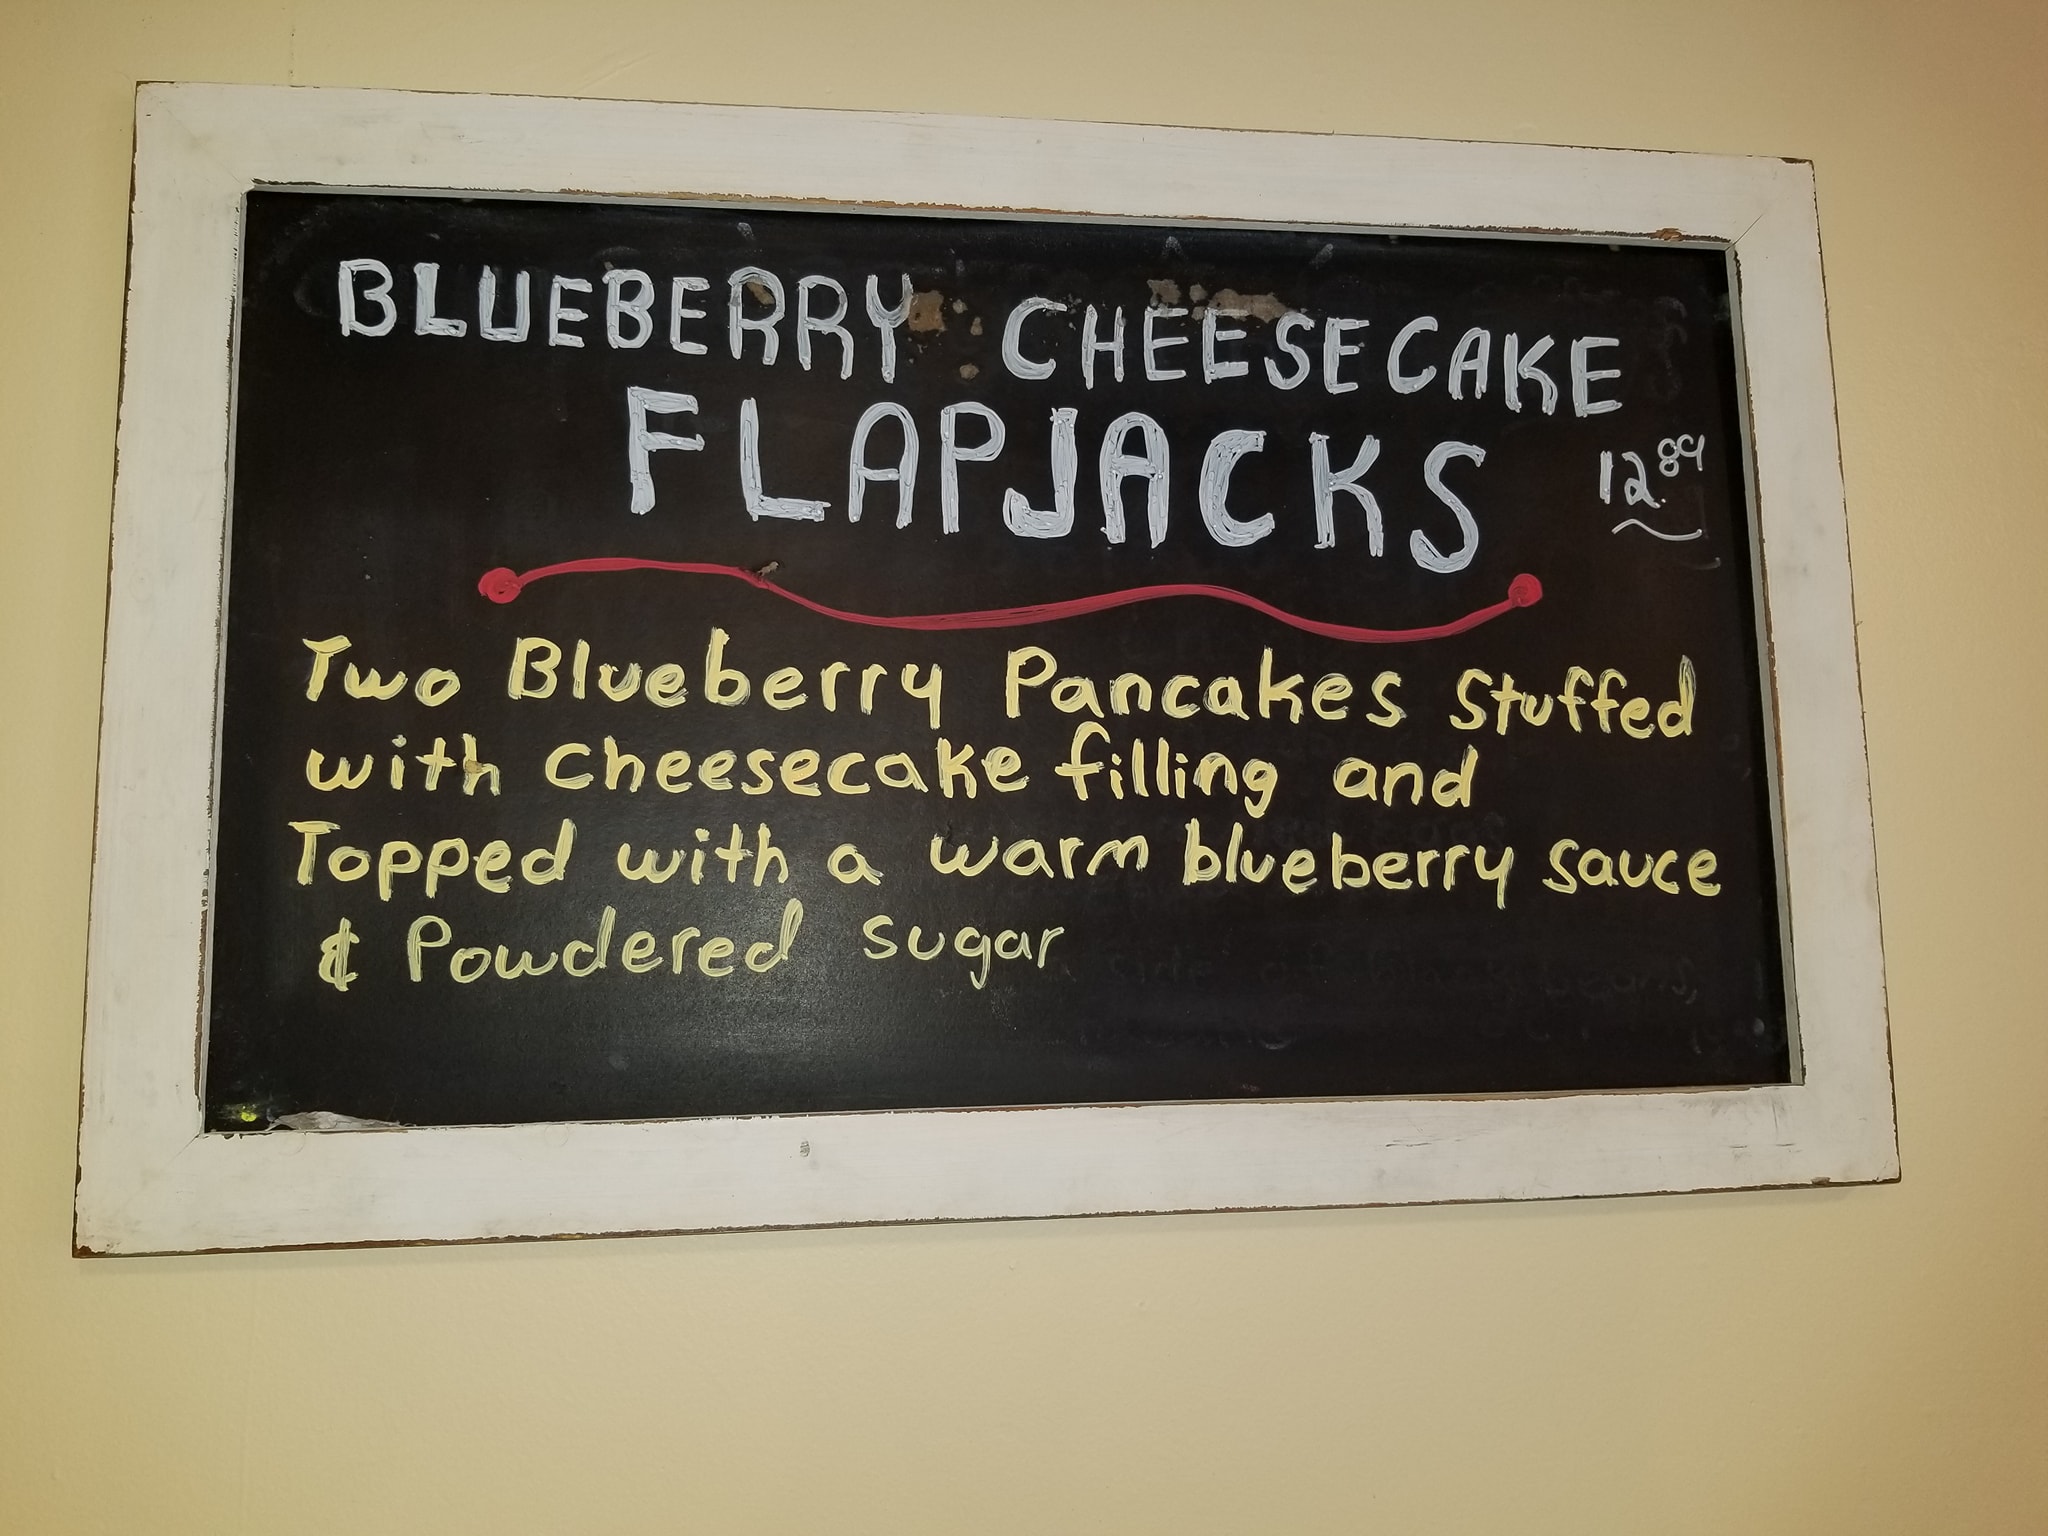 BLUEBERRY CHEESECAKE
FLAPJACKS
12.89
Two Blueberry Pancakes Stuffed
with cheesecake filling and
Topped with a warm blueberry sauce
& Powdered sugar